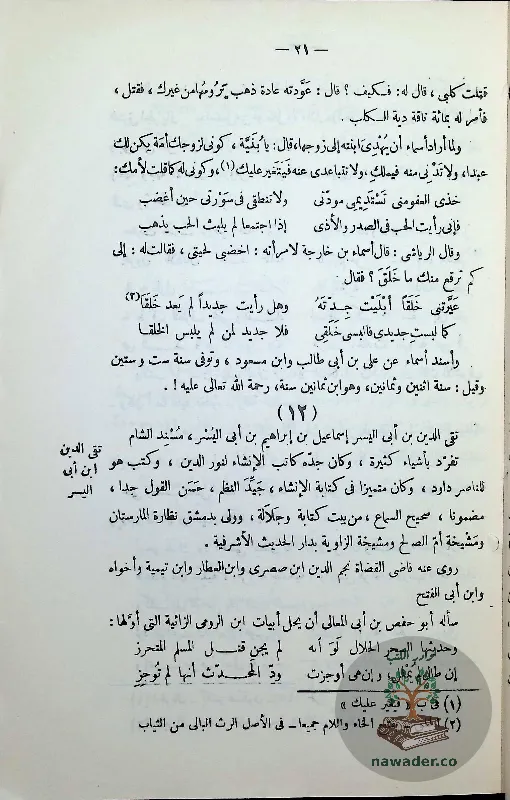 — ٢١ —
قتلت كلبى ، قال له : فكيف ؟ قال : عَوَّدته عادة ذهب يَرُومها من غيرك ، فقتل ،
فأمر له بمائة ناقة دية الكلب .
ولما أراد أسماء أن يُهْدِىَ ابنته إلى زوجها، قال : يا بُنَيَّة ، كونى لزوجك أمَة يكن لك
عبدا، ولا تَدْنِى منه فيملك، ولا تتباعدى عنه فيَتغير عليك (١)، وكونى له كما قلت لأمك :
خذى العفو منى تَسْتَدِيمى مودَّتى ولا تنطقى فى سَوْرَتى حين أغضب
فإنى رأيت الحب فى الصدر والأذى إذا اجتمعا لم يلبث الحب يذهب
وقال الرياشى : قال أسماء بن خارجة لامرأته : اخضبى لحيتى ، فقالت له : إلى
كم ترقع منك ما خَلَقَ ؟ فقال
عَيَّرتنى خَلَقًا أبْلَيت جِدتَهُ وهل رأيت جديداً لم يَعد خَلَقَا (٢)
كما لبستِ جديدى فالبسى خَلَقِى فلا جديد لمن لم يلبس الخلقا
وأسند أسماء عن على بن أبى طالب وابن مسعود ، وتوفى سنة ست وستين
وقيل : سنة اثنين وثمانين، وهو ابن ثمانين سنة، رحمة الله تعالى عليه ! .
(١٢)
تقى الدين
ابن أبى
اليسر
تقى الدين بن أبى اليسر إسماعيل بن إبراهيم بن أبى اليُسْر، مُسْنِد الشام
تفرّد بأشياء كثيرة ، وكان جدّه كاتب الإنشاء لنور الدين ، وكتب هو
للناصر داود ، وكان متميزا فى كتابة الإنشاء ، جَيِّدَ النظم ، حَسَن القول جدا ،
مضمونا ، صحيح السماع ، من بيت كتابة وجلالة، وولى بدمشق نظارة المارستان
ومشيخة أمّ الصالح ومشيخة الزاوية بدار الحديث الأشرفية .
روى عنه قاضى القضاة نجم الدين ابن صصرى وابن العطار وابن تيمية وأخواه
وابن أبى الفتح
سأله أبو حفص بن أبى المعالى أن يحل أبيات ابن الرومى الزائية التى أوّلها :
وحديثها السحر الحلال لَوَ انه لم يجن قتل المسلم المتحرز
إن طال لم يُملل، وإن هى أوجزت ودّ المحَدث أنها لم تُوجِز
(١) فى ب « فيغير عليك »
(٢) بفتح الخاء واللام جميعا ــ فى الأصل الرث البالى من الثياب
نوادر الكتب
nawader.co